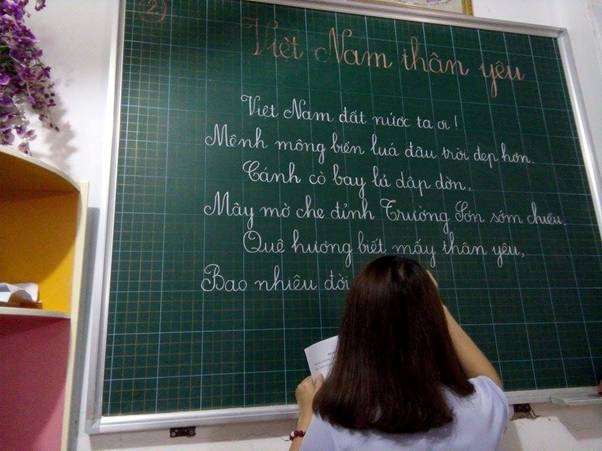 2)
Việt Nam thân yêu
Việt Nam đất nước ta ơi!
Mênh mông biển luá đâu trời đẹp hơn.
Cánh cò bay lả dập dờn,
Mây mờ che đỉnh Trường Sơn sớm chiều.
Quê hương biết mấy thân yêu,
Bao nhiêu đời